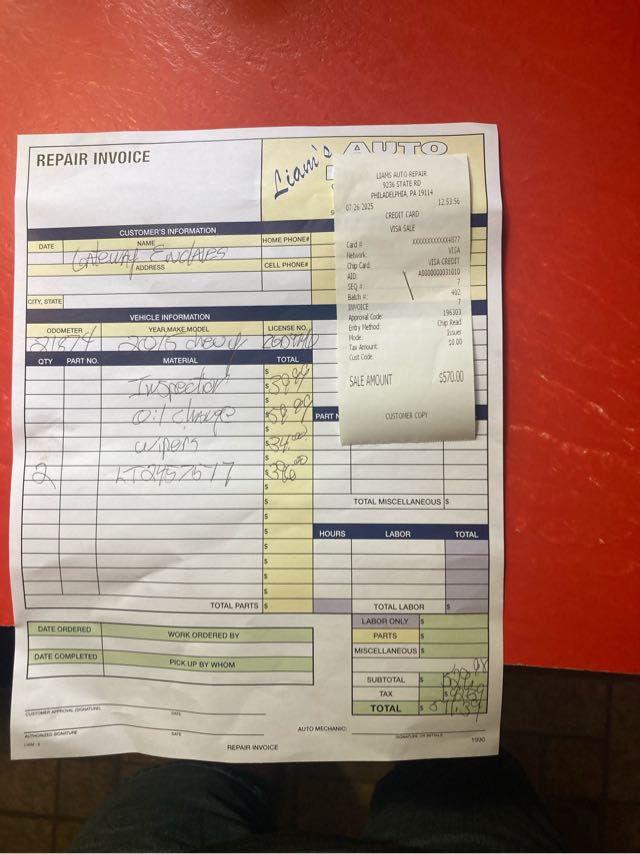 REPAIR INVOICE
Liam's AUTO
CUSTOMER'S INFORMATION
DATE NAME HOME PHONE#
Gateway
ADDRESS CELL PHONE#
CITY, STATE
VEHICLE INFORMATION
ODOMETER YEAR,MAKE,MODEL LICENSE NO.
21874 2015 chevy
QTY PART NO. MATERIAL TOTAL
Inspection $
oil change $
wipers $
2 LT2457517 $
$
$
$
$
$
$
$
TOTAL PARTS $
LIAMS AUTO REPAIR
9236 STATE RD
PHILADELPHIA, PA 19114
07/26/2025 12:53:56
CREDIT CARD
VISA SALE
Card # XXXXXXXXXXXX4877
Network: VISA
Chip Card: VISA CREDIT
AID: A0000000031010
SEQ #: 7
Batch #: 402
INVOICE 7
Approval Code: 196303
Entry Method: Chip Read
Mode: Issuer
Tax Amount: $0.00
Cust Code:
SALE AMOUNT $570.00
CUSTOMER COPY
PART N
TOTAL MISCELLANEOUS $
HOURS LABOR TOTAL
TOTAL LABOR $
LABOR ONLY $
PARTS $
MISCELLANEOUS $
SUBTOTAL $
TAX $
TOTAL $
DATE ORDERED WORK ORDERED BY
DATE COMPLETED PICK UP BY WHOM
CUSTOMER APPROVAL (SIGNATURE) DATE
AUTHORIZED SIGNATURE DATE
AUTO MECHANIC:
SIGNATURE OR INITIALS
REPAIR INVOICE
1990